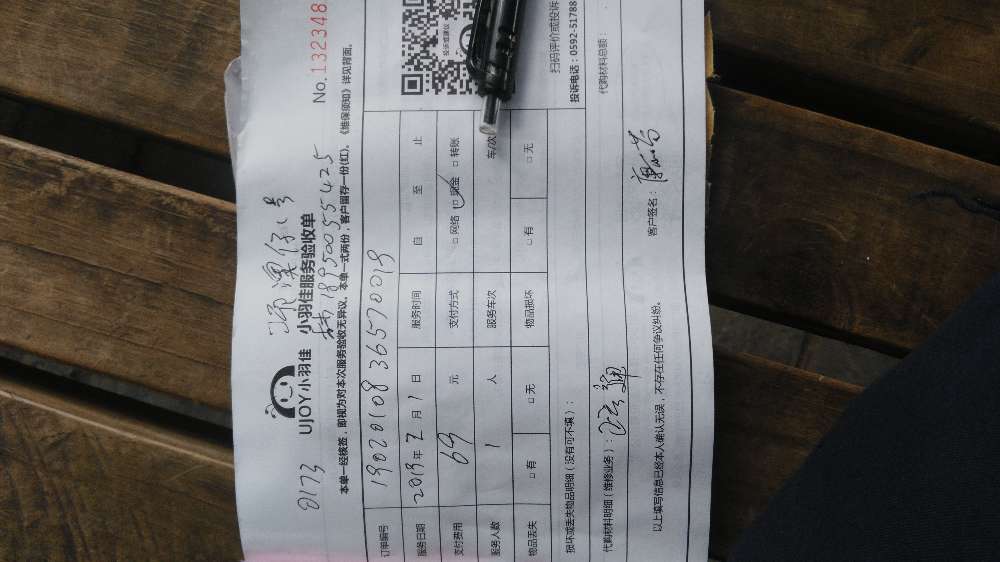 No.132348
0173
UJOY小羽佳 小羽佳服务验收单
18950055425
本单一经核签，即视为对本次服务验收无异议。本单一式两份，客户留存一份(红)。《维保须知》详见背面。
订单编号 1902010836570019
服务日期 2019年2月1日 服务时间 自 至 止
支付费用 69 元 支付方式 □网络 □现金 □转账
服务人数 1 人 服务车次 车/次
物品丢失 □有 □无 物品损坏 □有 □无
损坏或丢失物品明细（没有可不填）：
代购材料明细（维修业务）： 代购材料总额：
以上填写信息已经本人确认无误，不存在任何争议纠纷。 客户签名：
投诉或建议
扫码评价或投诉
投诉电话：0592-51788